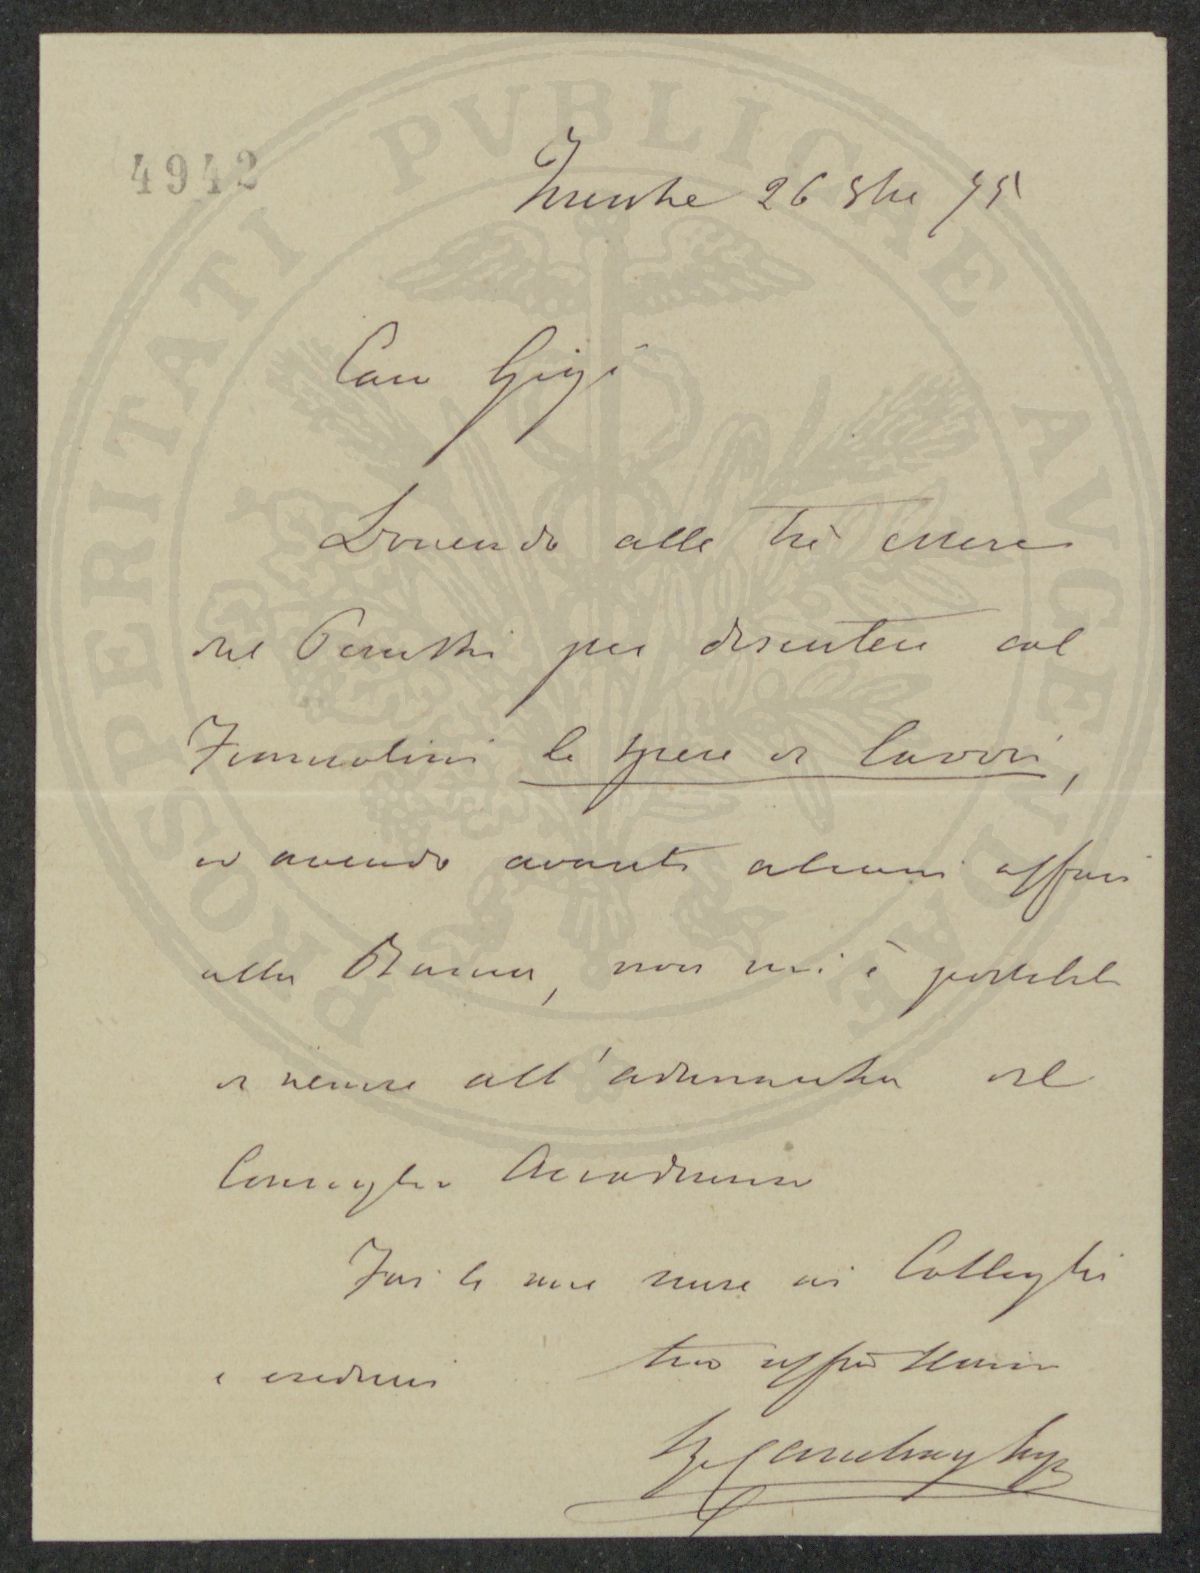 4942
PROSPERITATI PVBLICAE AVGENDAE
Firenze 26 8bre 75
Caro Gigi
Dovendo alle trè essere
dal Peruzzi per discutere col
Francolini le spese di lavori,
ed avendo avanti alcuni affari
alla Banca, non mi è possibile
di venire all'adunanza del
Consiglio Accademico
Fai le mie scuse ai Colleghi
e credimi tuo affmo Amico